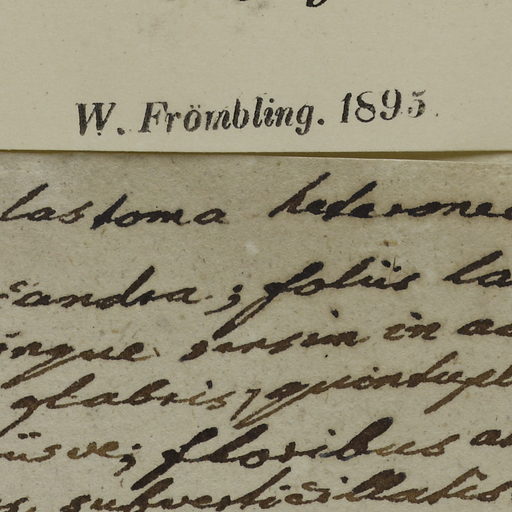 W. Frömbling. 1895.
lastoma heterone
candra; foliis la
inque sensim in ac
glabris, quintupl
iisve; floribus a
subverticillatis